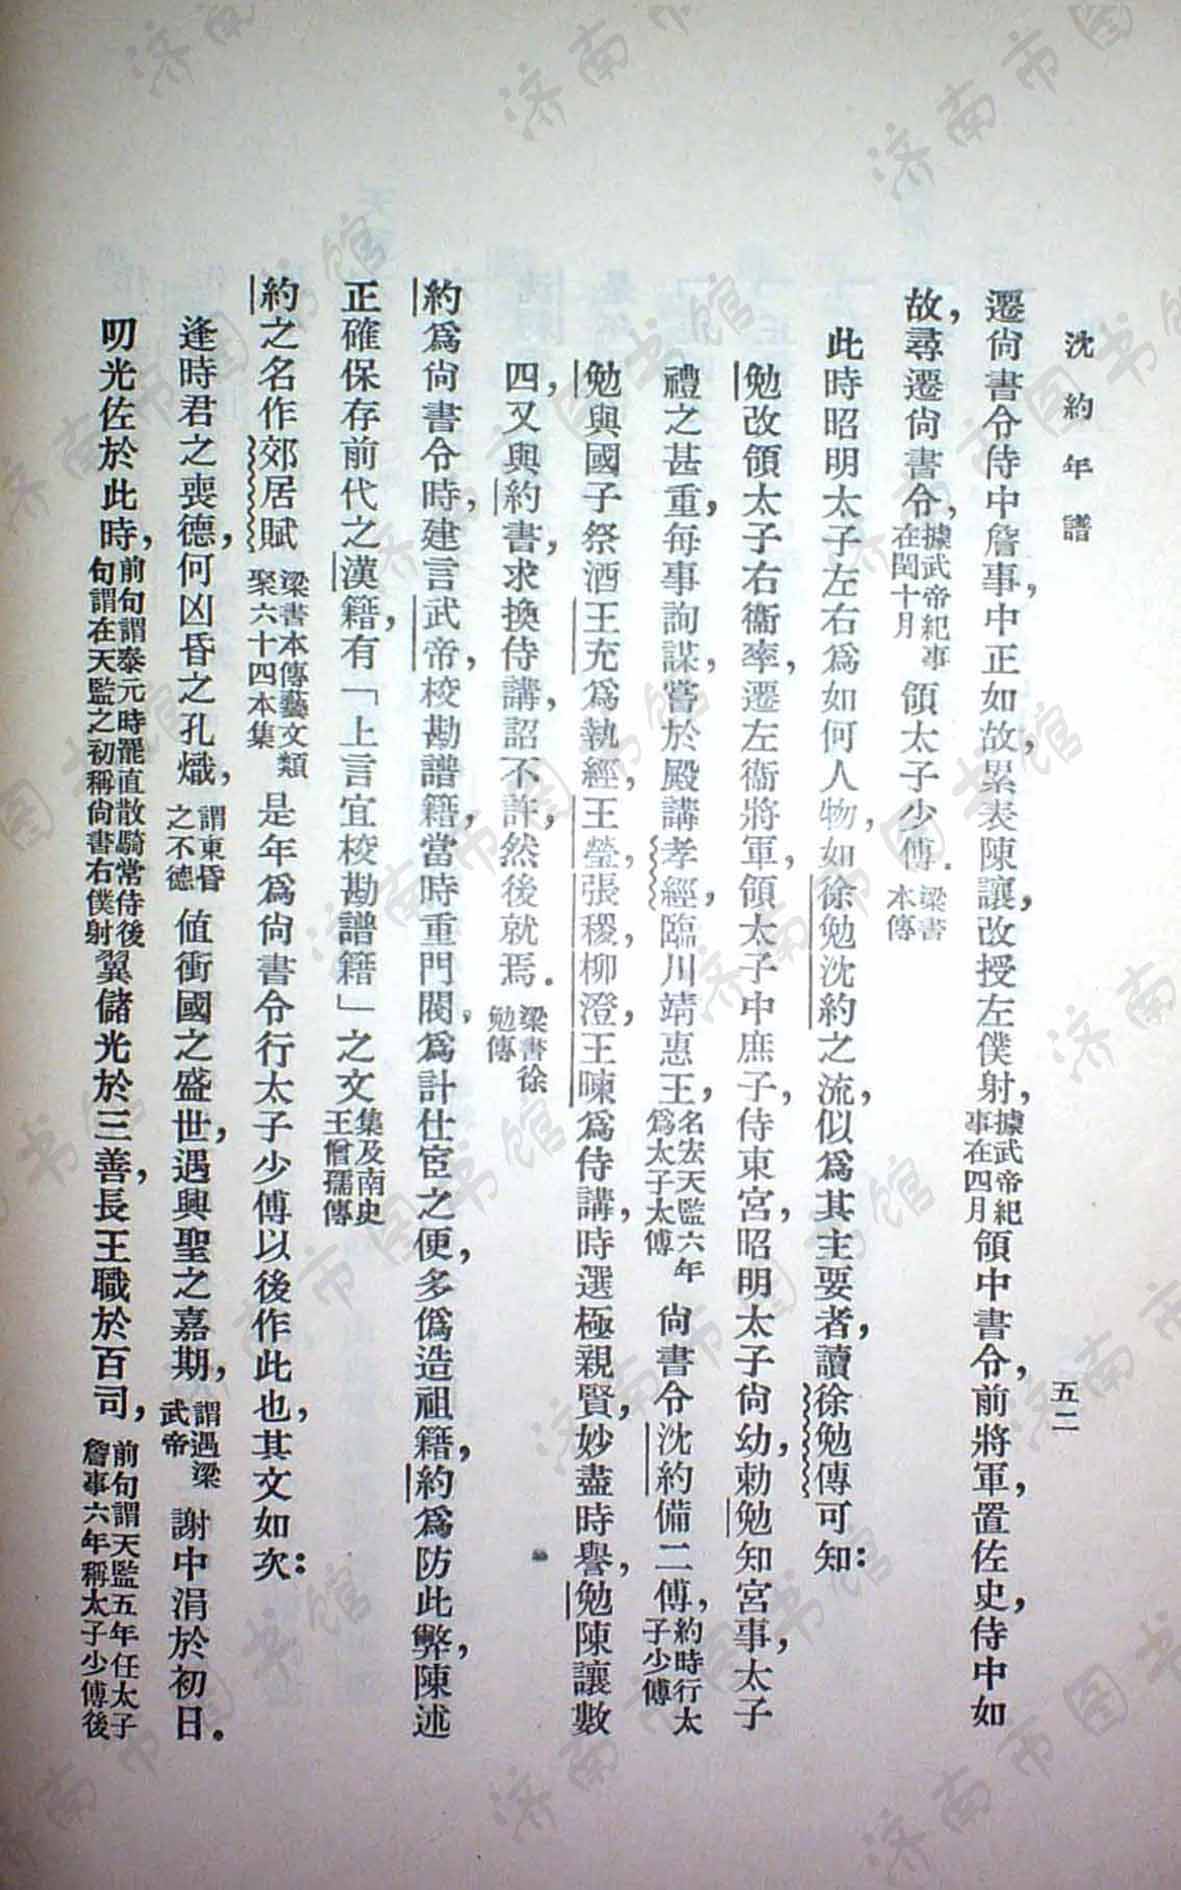 沈約年譜
五二
遷尙書令侍中詹事，中正如故，累表陳讓，改授左僕射，據武帝紀事在四月領中書令，前將軍，置佐史，侍中如
故，尋遷尙書令，據武帝紀事在閏十月領太子少傅．梁書本傳
此時昭明太子左右爲如何人物，如徐勉沈約之流，似爲其主要者，讀徐勉傳可知：
勉改領太子右衞率，遷左衞將軍，領太子中庶子，侍東宮，昭明太子尙幼，勅勉知宮事，太子
禮之甚重，每事詢謀，嘗於殿講孝經，臨川靖惠王，名宏天監六年爲太子太傅尙書令沈約備二傅，約時行太子少傅
勉與國子祭酒王充爲執經，王瑩，張稷，柳澄，王暕爲侍講，時選極親賢，妙盡時譽，勉陳讓數
四，又與約書，求換侍講，詔不許，然後就焉．梁書徐勉傳
約爲尙書令時，建言武帝，校勘譜籍，當時重門閥，爲計仕宦之便，多僞造祖籍，約爲防此弊，陳述
正確保存前代之漢籍，有「上言宜校勘譜籍」之文集及南史王僧孺傳
約之名作郊居賦梁書本傳藝文類聚六十四本集是年爲尙書令行太子少傅以後作此也，其文如次：
逢時君之喪德，何凶昏之孔熾，謂東昏之不德値衝國之盛世，遇興聖之嘉期，謂遇梁武帝謝中涓於初日．
叨光佐於此時，前句謂泰元時罷直散騎常侍後句謂在天監之初稱尙書右僕射翼儲光於三善，長王職於百司，前句謂天監五年任太子詹事六年稱太子少傅後
济南市图书馆